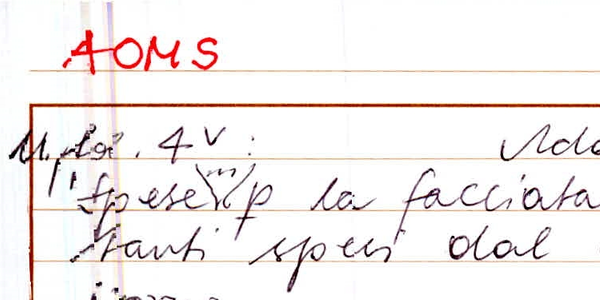 AOMS
4v: Ado
spese (m) p la facciata
stanti spesi dal